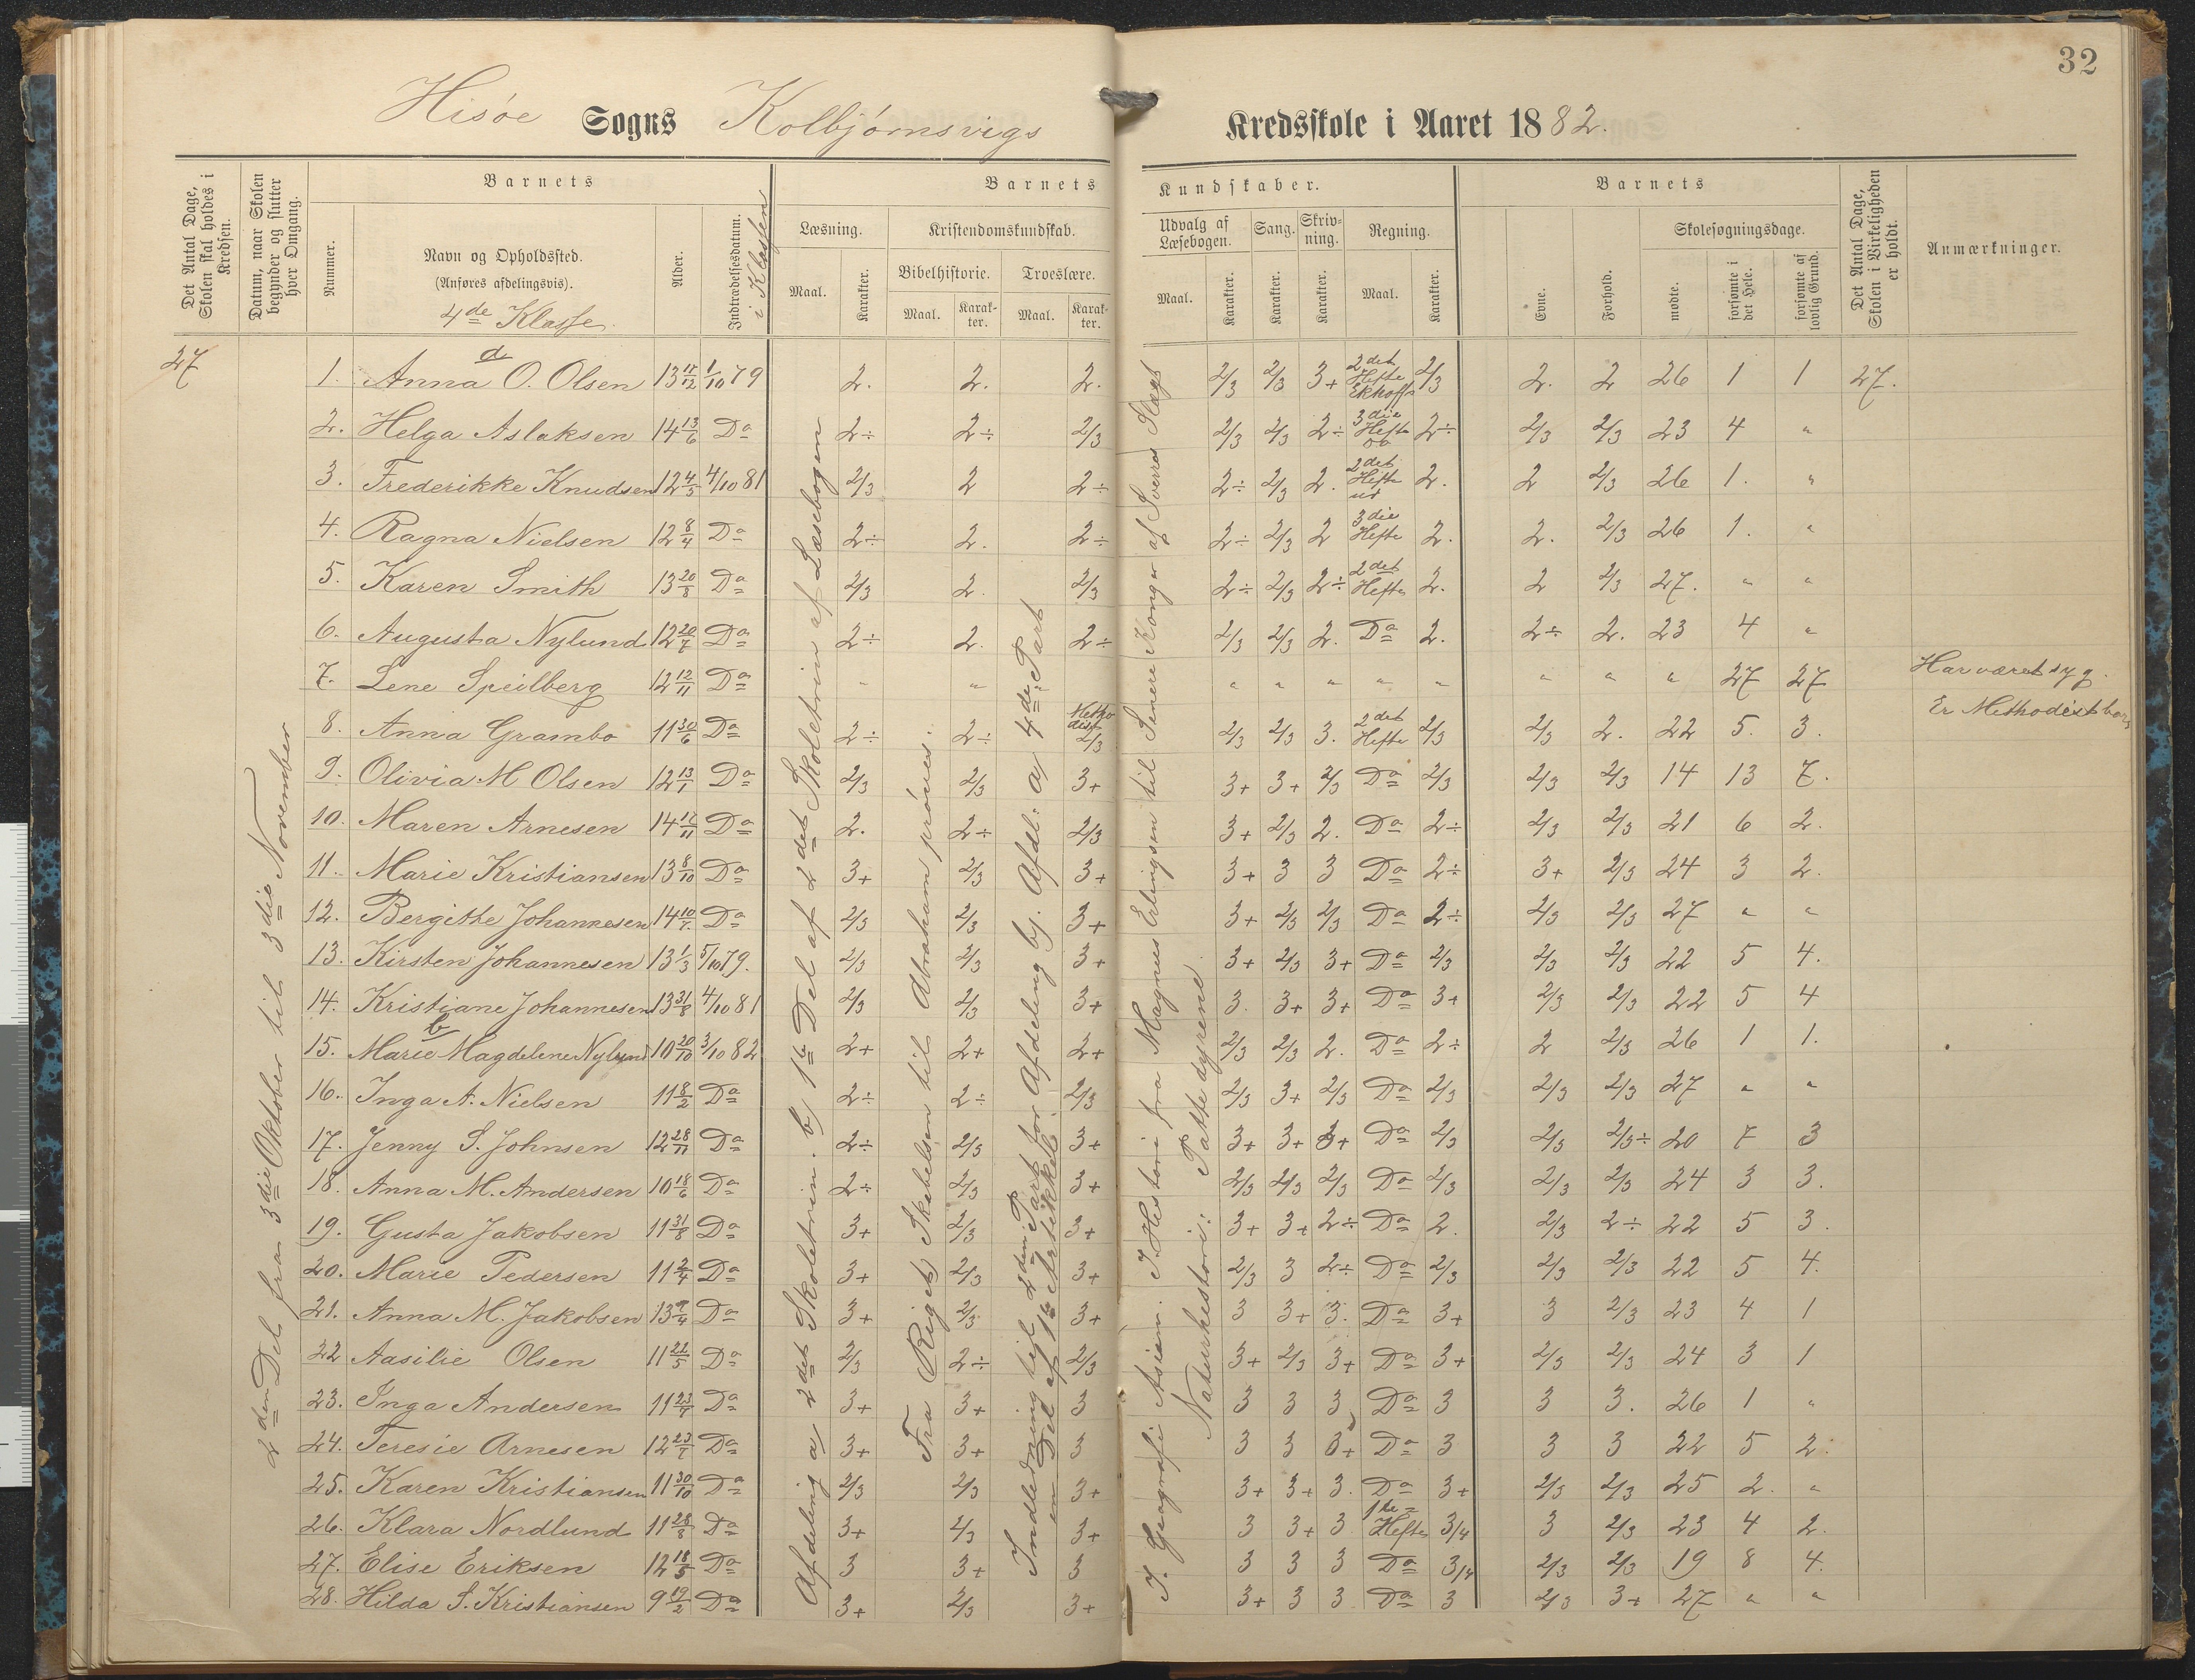 32
Hisøe Sogns Kolbjørnsvigs Kredsskole i Aaret 1882.
Det Antal Dage, Skolen skal holdes i Kredsen.
Datum, naar Skolen begynder og slutter hver Omgang.
Barnets
Nummer.
Navn og Opholdssted.
(Anføres afdelingsvis).
4de Klasse
Alder.
Indtrædelsesdatum.
i Klassen
Barnets Kundskaber.
Læsning.
Maal.
Karakter.
Kristendomskundskab.
Bibelhistorie.
Maal.
Karakter.
Troeslære.
Maal.
Karakter.
Udvalg af Læsebogen.
Maal.
Karakter.
Sang.
Karakter.
Skrivning.
Karakter.
Regning.
Maal.
Karakter.
Barnets
Evne.
Forhold.
Skolesøgningsdage.
mødte.
forsømte i det Hele.
forsømte af lovlig Grund.
Det Antal Dage, Skolen i Virkeligheden er holdt.
Anmærkninger.
27
2den Del fra 3die Oktober til 3die November
Afdeling a 2det Skoletrin. b) 1ste Del af 2det Skoletrin af Læsebogen
Fra Rigets Skabelsen til Abraham prøves.
Indledning til 2den Part for Afdeling b). Afdl: a) 4de Part
en Del af 1ste Artikkel
I Geografi Asien. I Histori fra Magnus Erlingsen til Senere Konger af Sverres Slægt
Naturhistori: Pattedyrene
a
1. Anna O. Olsen 13 11/12 1/10 79 2. 2. 2. 2/3 2/3 3+ 2det Hefte Ekhoff 2/3 2. 2 26 1 1 27.
2. Helga Aslaksen 14 13/6 Do 2÷ 2÷ 2/3 2/3 2/3 2÷ 3die Hefte 2÷ 2/3 2/3 23 4 "
3. Frederikke Knudsen 12 4/5 4/10 81 2/3 2 2÷ 2÷ 2/3 2. 2det Hefte 2. 2 2/3 26 1. "
4. Ragna Nielsen 12 8/4 Do 2÷ 2. 2÷ 2÷ 2/3 2 3die Hefte 2. 2. 2/3 26 1. "
5. Karen Smith 13 20/8 Do 2/3 2. 2/3 2÷ 2/3 2÷ 2det Hefte 2. 2 2/3 27. " "
6. Augusta Nylund 12 20/7 Do 2÷ 2. 2÷ 2/3 2/3 2. Do 2. 2÷ 2. 23 4 "
7. Lene Speilberg 12 12/11 Do " " " " " " " " " " 27 27 Har været syg.
8. Anna Grambo 11 30/6 Do 2÷ 2÷ Methodist 2/3 2/3 2/3 3. 2det Hefte 2/3 2/3 2. 22 5. 3. Er Methodistbarn
9. Olivia M Olsen 12 13/1 Do 2/3 2/3 3+ 3+ 3+ 2/3 Do 2/3 2/3 2/3 14 13 7.
10. Maren Arnesen 14 12/11 Do 2. 2÷ 2/3 3+ 2/3 2. Do 2÷ 2/3 2/3 21 6 2.
11. Marie Kristiansen 13 8/10 Do 3+ 2/3 3+ 3+ 3 3 Do 2÷ 3+ 2/3 24 3 2.
12. Bergithe Johannesen 14 10/7 Do 2/3 2/3 3+ 3+ 2/3 2/3 Do 2÷ 2/3 2/3 27 " "
13. Kirsten Johannesen 13 1/3 5/10 79. 2/3 2/3 3+ 3+ 2/3 3+ Do 2/3 2/3 2/3 22 5 4.
14. Kristiane Johannesen 13 31/8 4/10 81 2/3 2/3 3+ 3. 3+ 3+ Do 3+ 2/3 2/3 22 5 4
b
15. Marie Magdelene Nylund 10 20/10 3/10 82 2+ 2+ 2+ 2/3 2/3 2. Do 2÷ 2 2/3 26 1 1.
16. Inga A. Nielsen 11 8/2 Do 2÷ 2÷ 2/3 2/3 3+ 2/3 Do 2/3 2/3 2/3 27 " "
17. Jenny S. Johnsen 12 28/11 Do 2÷ 2/3 3+ 3+ 3+ 3+ Do 2/3 2/3 2/3÷ 20 7 3
18. Anna M. Andersen 10 18/6 Do 2÷ 2/3 3+ 2/3 2/3 2/3 Do 2/3 2/3 2/3 24 3 3.
19. Gusta Jakobsen 11 31/8 Do 3+ 2/3 3+ 3+ 3+ 2÷ Do 2. 2/3 2÷ 22 5 3.
20. Marie Pedersen 11 2/4 Do 3+ 2/3 3+ 2/3 3 2÷ Do 2/3 2/3 2/3 22 5 4.
21. Anna M. Jakobsen 13 9/4 Do 3+ 2/3 3+ 3 3+ 3. Do 3+ 3 2/3 23 4 1
22 Aasilie Olsen 11 22/5 Do 2/3 2÷ 2/3 3+ 2/3 3+ Do 3+ 2/3 2/3 24 3 1
23. Inga Andersen 11 23/7 Do 3+ 3+ 3 3 3 3 Do 3 3 3. 26 1 "
24. Teresie Arnesen 12 23/7 Do 3+ 3+ 3 3 3 3+ Do 3 3 3 22 5 2.
25. Karen Kristiansen 11 30/10 Do 2/3 2/3 3+ 3+ 3+ 3. Do 3+ 2/3 2/3 25 2. "
26. Klara Nordlund 11 28/8 Do 3+ 2/3 3+ 3 3+ 3 1ste Hefte 3/4 3 2/3 23 4 2.
27. Elise Eriksen 12 18/5 Do 3 3+ 3 3 3 3 Do 3/4 2/3 2/3 19 8 4.
28. Hilda S. Kristiansen 9 19/2 Do 3+ 2/3 3+ 3+ 3 3 Do 3 2/3 3+ 27 " "